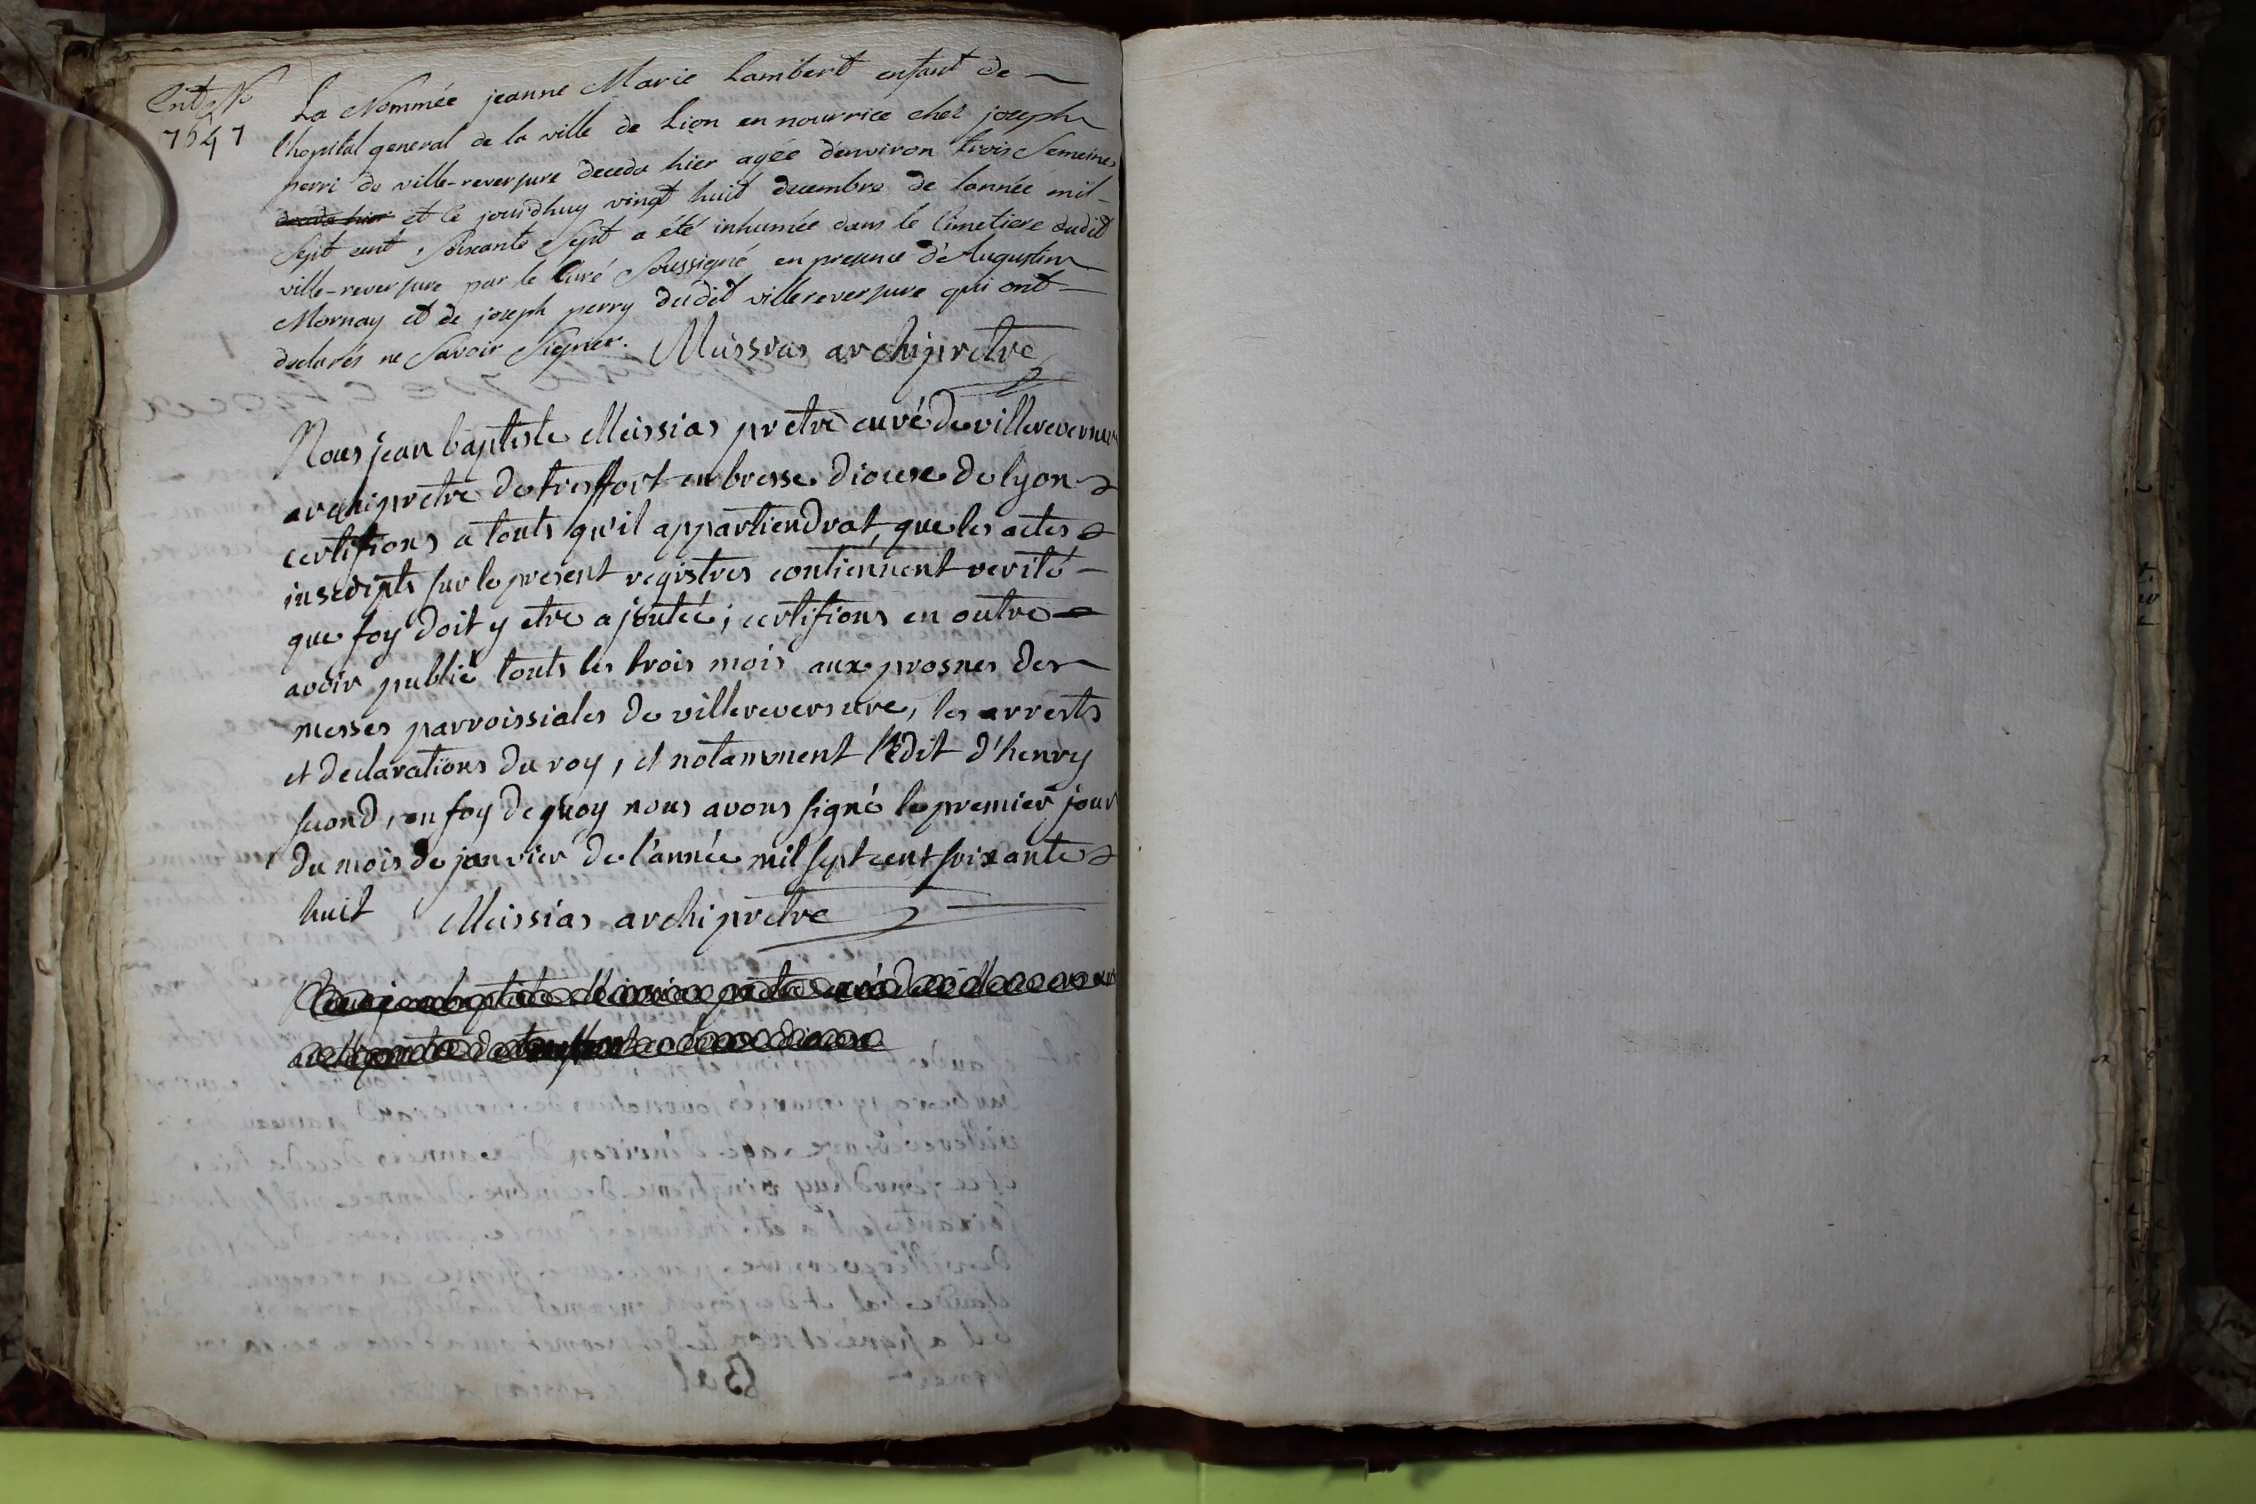 7647
La Nommée jeanne Marie Lambert enfant de
l'hopital general de la ville de Lion en nourrice chez joseph
perri de ville-reversure deceda hier agée denviron trois Semeines
deceda hier et ce jourdhuy vingt huit decembre de lannée mil
Sept cent Soixante Sept a été inhumée dans le Cimetiere dudit
ville-reversure par le Curé Soussigné en presence d'Augustin
Mornay et de joseph perry dudit villereversure qui ont
declarés ne Savoir Signer. Meissias archiprêtre
Nous jean baptiste Meissias prêtre curé de villereversure
archiprêtre de treffort en bresse diocese de lyon
certifions a touts qu'il appartiendrat, que les actes
inscripts sur le present registres contiennent verité
que foy doit y etre ajoutée; certifions en outre
avoir publié touts les trois mois aux prosnes des
messes parroissiales de villereversure, les arrests
et declarations du roy, et notamment l'edit d'henry
second, en foy de quoy nous avons signé le premier jour
du mois de janvier de l'année mil sept cent soixante
huit Meissias archiprêtre